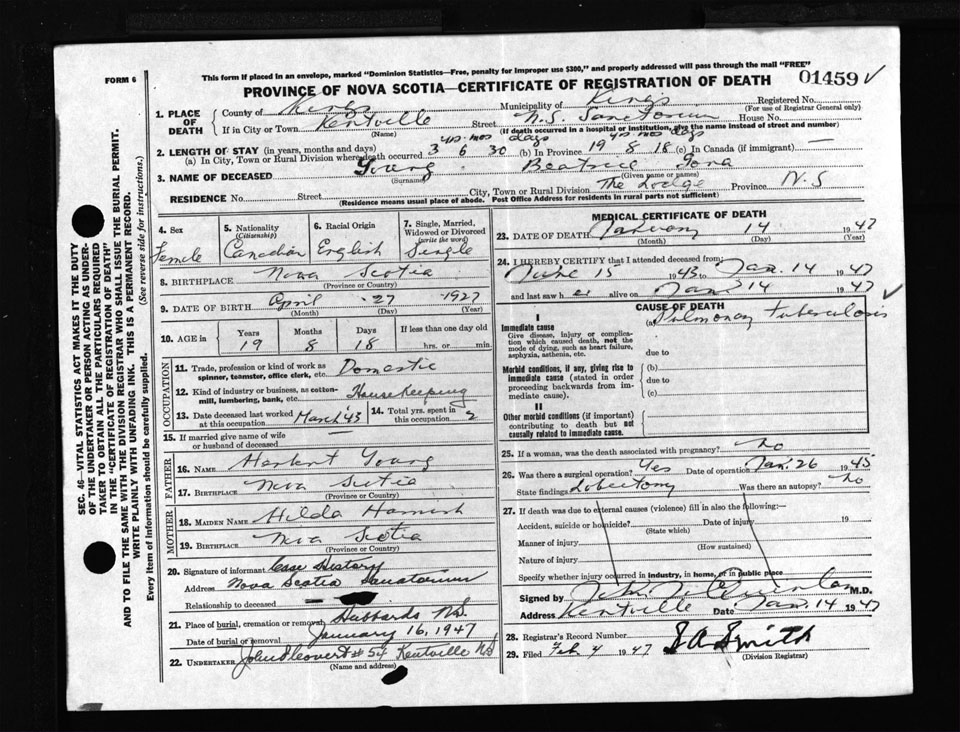 This form if placed in an envelope, marked "Dominion Statistics—Free, penalty for improper use $300," and properly addressed will pass through the mail "FREE"
FORM 6
PROVINCE OF NOVA SCOTIA—CERTIFICATE OF REGISTRATION OF DEATH 01459
1. PLACE OF DEATH County of Kings Municipality of Kings Registered No. (For use of Registrar General only)
If in City or Town Kentville (Name) Street N.S. Sanatorium House No.
(If death occurred in a hospital or institution, give the name instead of street and number)
yrs. mos days yrs mos days
2. LENGTH OF STAY (in years, months and days)
(a) In City, Town or Rural Division where death occurred 3 6 30 (b) In Province 19 8 18 (c) In Canada (if immigrant) —
3. NAME OF DECEASED Young (Surname) Beatrice Iona (Given name or names)
RESIDENCE No. Street City, Town or Rural Division The Lodge Province N.S
(Residence means usual place of abode. Post Office Address for residents in rural parts not sufficient)
4. Sex Female
5. Nationality (Citizenship) Canadian
6. Racial Origin English
7. Single, Married, Widowed or Divorced (write the word) Single
8. BIRTHPLACE Nova Scotia (Province or Country)
9. DATE OF BIRTH April 27 1927
(Month) (Day) (Year)
10. AGE in Years 19 Months 8 Days 18 If less than one day old hrs. or min.
OCCUPATION
11. Trade, profession or kind of work as spinner, teamster, office clerk, etc. Domestic
12. Kind of industry or business, as cotton-mill, lumbering, bank, etc. Housekeeping
13. Date deceased last worked at this occupation March '43 14. Total yrs. spent in this occupation 2
15. If married give name of wife or husband of deceased
FATHER
16. NAME Herbert Young
17. BIRTHPLACE Nova Scotia
(Province or Country)
MOTHER
18. MAIDEN NAME Hilda Harnish
19. BIRTHPLACE Nova Scotia
(Province or Country)
20. Signature of informant Case History
Address Nova Scotia Sanatorium
Relationship to deceased
21. Place of burial, cremation or removal Hubbards N.S.
Date of burial or removal January 16, 1947
22. UNDERTAKER Kentville NS
(Name and address)
MEDICAL CERTIFICATE OF DEATH
23. DATE OF DEATH January 14 1947
(Month) (Day) (Year)
24. I HEREBY CERTIFY that I attended deceased from
June 15 1943 to Jan. 14 1947
and last saw her alive on Jan 14 1947
CAUSE OF DEATH
I
Immediate cause (a) Pulmonary tuberculosis
Give disease, injury or complication which caused death, not the mode of dying, such as heart failure, asphyxia, asthenia, etc. due to
Morbid conditions, if any, giving rise to immediate cause (stated in order proceeding backwards from immediate cause). (b) due to (c)
II
Other morbid conditions (if important) contributing to death but not causally related to immediate cause.
25. If a woman, was the death associated with pregnancy? No
26. Was there a surgical operation? Yes Date of operation Jan. 26 1945
State findings Lobectomy Was there an autopsy? No
27. If death was due to external causes (violence) fill in also the following:—
Accident, suicide or homicide? Date of injury 19
(State which)
Manner of injury
(How sustained)
Nature of injury
Specify whether injury occurred in industry, in home, or in public place
Signed by M.D.
Address Kentville Date Jan. 14 1947
28. Registrar's Record Number
29. Filed Feb. 4 1947 S A Smith
(Division Registrar)
SEC. 46—VITAL STATISTICS ACT MAKES IT THE DUTY
OF THE UNDERTAKER OR PERSON ACTING AS UNDER-
TAKER TO OBTAIN ALL THE PARTICULARS REQUIRED
IN THE "CERTIFICATE OF REGISTRATION OF DEATH"
AND TO FILE THE SAME WITH THE DIVISION REGISTRAR WHO SHALL ISSUE THE BURIAL PERMIT.
WRITE PLAINLY WITH UNFADING INK. THIS IS A PERMANENT RECORD.
Every item of Information should be carefully supplied. (See reverse side for instructions.)